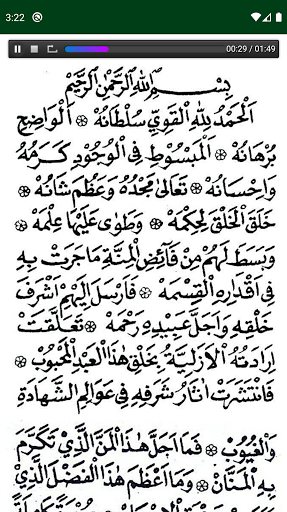 3:22
00:29 / 01:49
بِسْمِ اللهِ الرَّحْمٰنِ الرَّحِيْمِ
اَلْحَمْدُ لِلّٰهِ الْقَوِيِّ سُلْطَانُهْ ۞ اَلْوَاضِحِ
بُرْهَانُهْ ۞ اَلْمَبْسُوْطِ فِي الْوُجُوْدِ كَرَمُهُ
وَاِحْسَانُهْ ۞ تَعَالٰى مَجْدُهُ وَعَظُمَ شَانُهْ ۞
خَلَقَ الْخَلْقَ لِحِكْمَهْ ۞ وَطَوٰى عَلَيْهَا عِلْمَهْ ۞
وَبَسَطَ لَهُمْ مِنْ فَآئِضِ الْمِنَّةِ مَا جَرَتْ بِهِ
فِيْ اَقْدَارِهِ الْقِسْمَهْ ۞ فَارْسَلَ اِلَيْهِمْ اَشْرَفَ
خَلْقِهِ وَاَجَلَّ عَبِيْدِهِ رَحْمَهْ ۞ تَعَلَّقَتْ
اِرَادَتُهُ الْاَزَلِيَّةُ بِخَلْقِ هٰذَا الْعَبْدِ الْمَحْبُوْبِ ۞
فَانْتَشَرَتْ اٰثَارُ شَرَفِهِ فِيْ عَوَالِمِ الشَّهَادَةِ
وَالْغُيُوْبِ ۞ فَمَا اَجَلَّ هٰذَا الْمَنَّ الَّذِيْ تَكَرَّمَ
بِهِ الْمَنَّانْ ۞ وَمَا اَعْظَمَ هٰذَا الْفَضْلَ الَّذِيْ